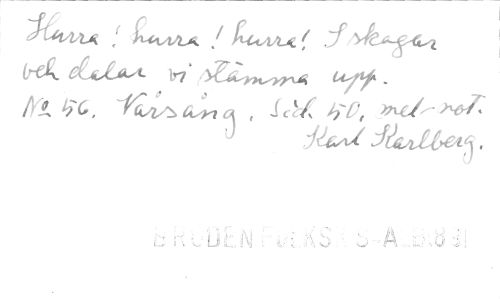 Hurra! hurra! hurra! I skogar
och dalar vi stämma upp.
No 56. Vårsång. Sid. 50, mel-not.
Karl Karlberg.